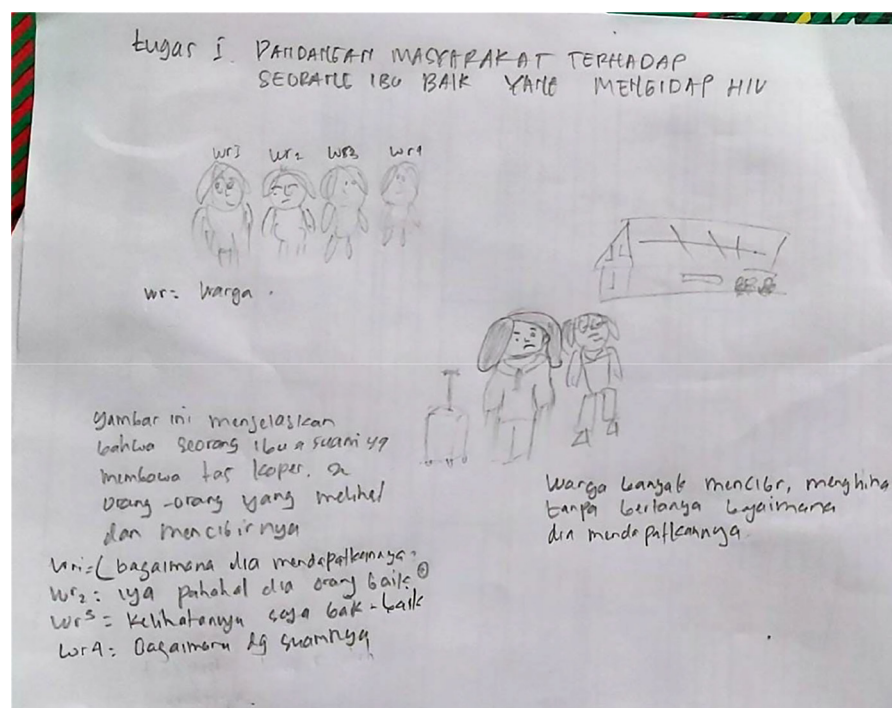 tugas I. PANDANGAN MASYARAKAT TERHADAP
SEORANG IBU BAIK YANG MENGIDAP HIV
wr3 wr2 wr3 wr4
wr = warga.
gambar ini menjelaskan
bahwa seorang ibu a suami yg
membawa tas koper.
orang-orang yang melihat
dan mencibirnya
wr1 = ( bagaimana dia mendapatkannya.
wr2 : iya pahahal dia orang baik
wr3 = kelihatannya saya baik-baik
wr4 = Bagaimana dg suaminya
warga banyak mencibr, menghina
tanpa bertanya bagaimana
dia mendapatkannya.